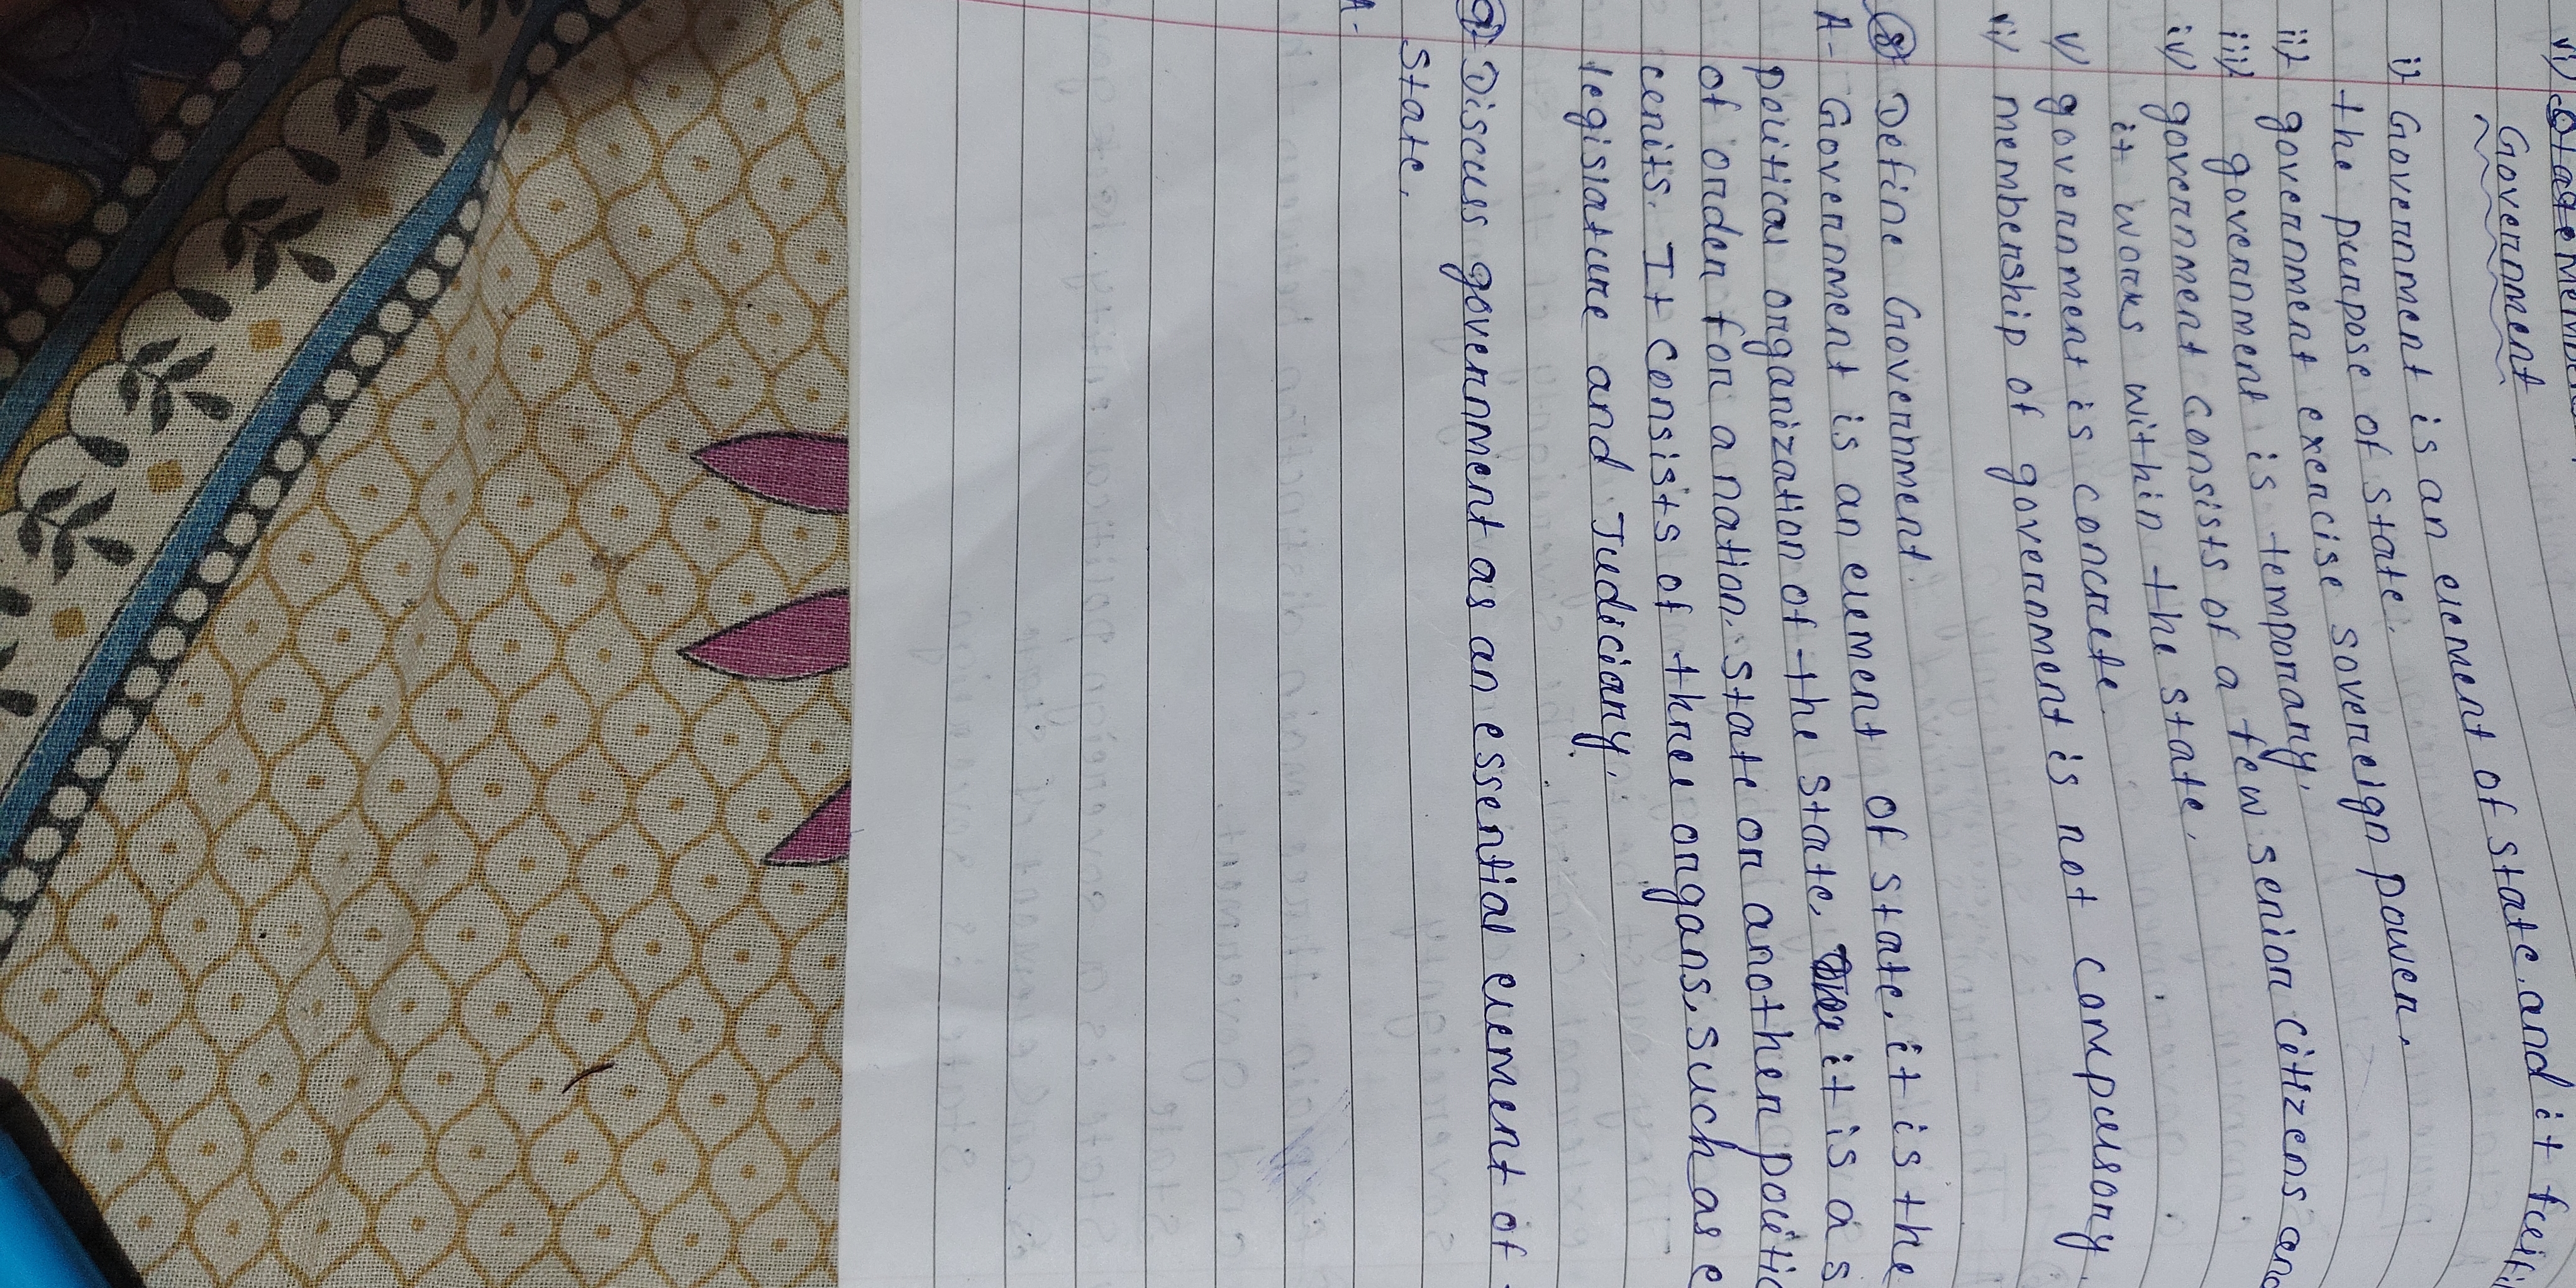 Government
i) Government is an element of state, and it
the purpose of state.
ii) government exercise sovereign power.
iii) government is temporary.
iv) government consists of a few senior citizens and
it works within the state.
v) government is concrete.
vi) membership of government is not compulsory.
8) Define Government.
A- Government is an element of state, it is the
political organization of the state, it is a
of order for a nation, state or another
cenits. It consists of three organs, such as
legislature and Judiciary.
9) Discuss government as an essential element of
state.
A-